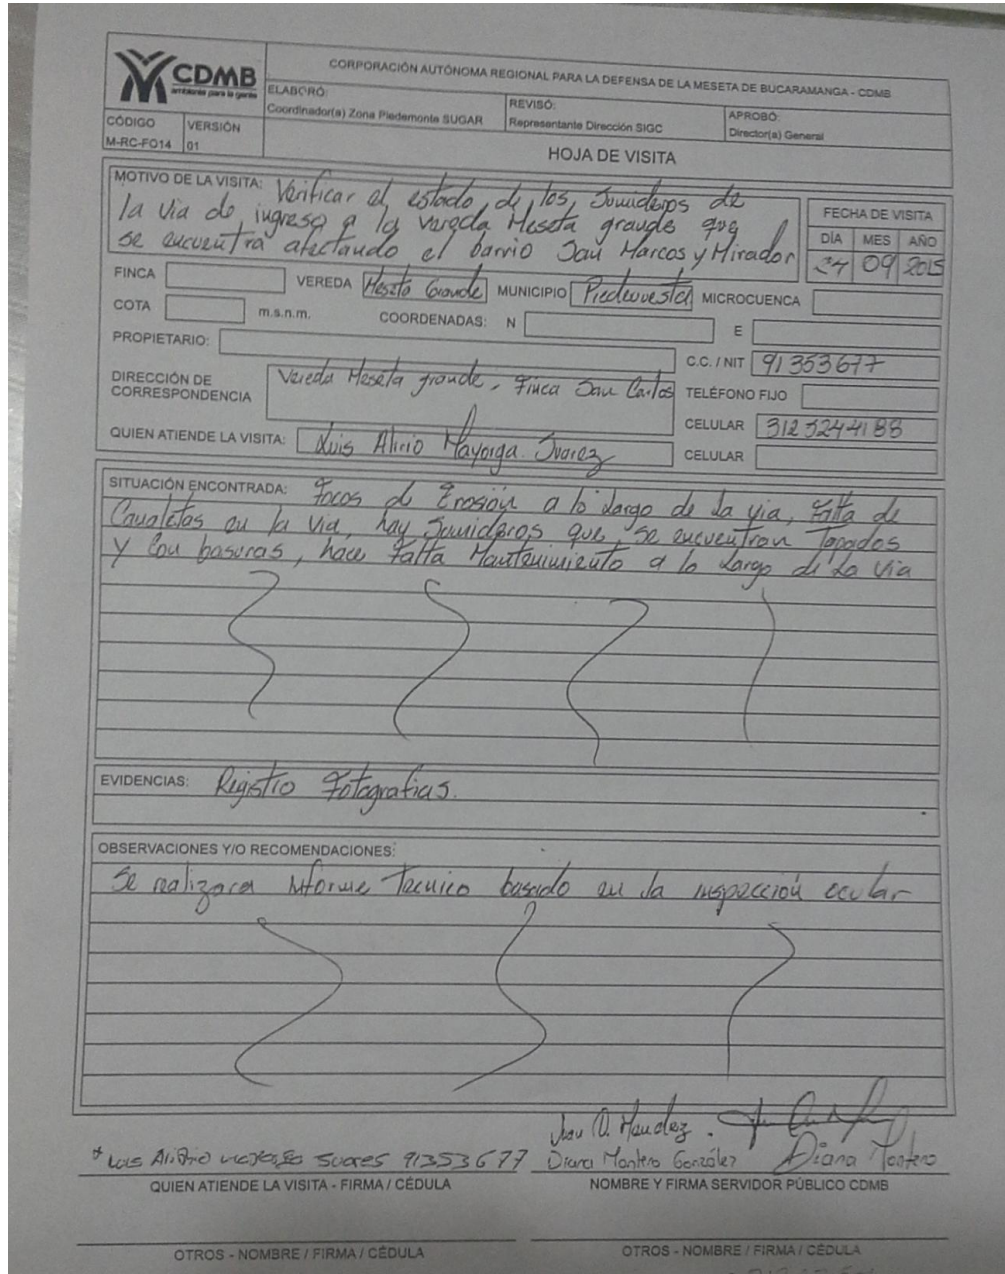 CDMB
ambiente para la gente
CORPORACIÓN AUTÓNOMA REGIONAL PARA LA DEFENSA DE LA MESETA DE BUCARAMANGA - CDMB
ELABORÓ:
Coordinador(a) Zona Piedemonte SUGAR
REVISÓ:
Representante Dirección SIGC
APROBÓ:
Director(a) General
CÓDIGO
M-RC-FO14
VERSIÓN
01
HOJA DE VISITA
MOTIVO DE LA VISITA: Verificar el estado de los Sumideros de
la via de ingreso a la vereda Meseta grande que
se encuentra afectando el barrio San Marcos y Mirador
FECHA DE VISITA
DÍA MES AÑO
24 09 2015
FINCA VEREDA Meseta Grande MUNICIPIO Piedecuesta MICROCUENCA
COTA m.s.n.m. COORDENADAS: N E
PROPIETARIO: C.C. / NIT 91353677
DIRECCIÓN DE CORRESPONDENCIA Vereda Meseta grande, Finca San Carlos TELÉFONO FIJO
CELULAR 3125244188
QUIEN ATIENDE LA VISITA: Luis Alirio Mayorga Suarez CELULAR
SITUACIÓN ENCONTRADA: Focos de Erosión a lo largo de la via, falta de
Canaletas en la via, hay Sumideros que se encuentran Tapados
y con basuras, hace falta Mantenimiento a lo largo de la via
EVIDENCIAS: Registro Fotografias.
OBSERVACIONES Y/O RECOMENDACIONES:
Se realizara Informe Tecnico basado en la inspección ocular
Juan D. Mendez.
* Luis 91353677 Diana Montero González Diana Montero
QUIEN ATIENDE LA VISITA - FIRMA / CÉDULA
NOMBRE Y FIRMA SERVIDOR PÚBLICO CDMB
OTROS - NOMBRE / FIRMA / CÉDULA
OTROS - NOMBRE / FIRMA / CÉDULA